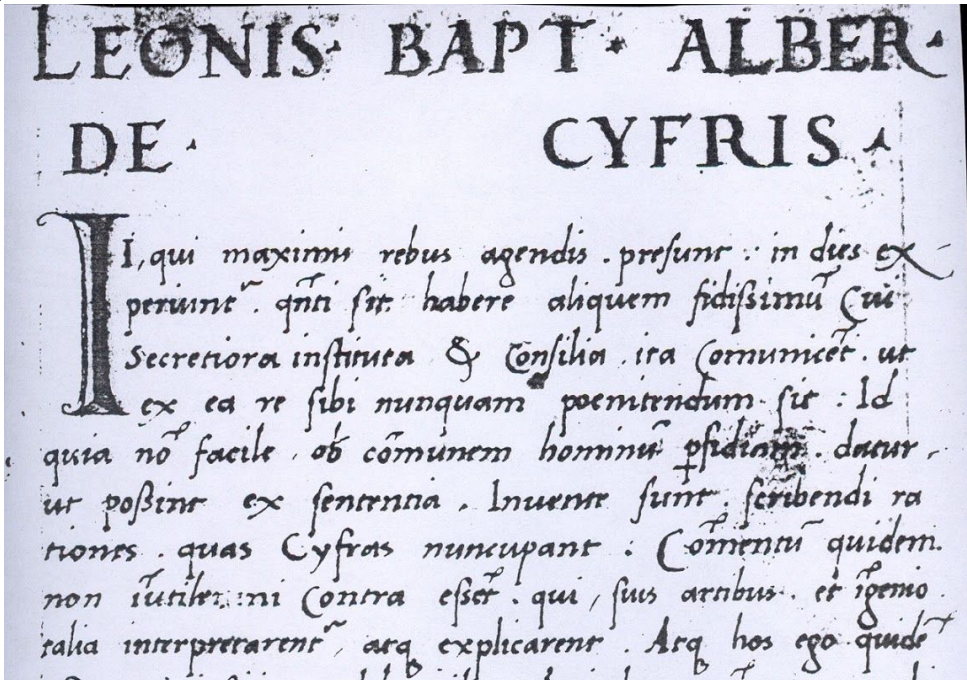 LEONIS · BAPT · ALBER ·
DE · CYFRIS ·
II, qui maximis rebus agendis . presunt : in dies ex
periunt᷑ . qñti sit habere aliquem fidissimũ Cui
Secretiora instituta & Consilia . ita Comunicẽt . ut
ex ea re sibi nunquam poenitendum sit : Id
quia nõ facile . ob cõmunem hominũ ꝑfidiam . datur ,
ut poßint ex sententia . Invente sunt . scribendi ra
tiones . quas Cyfras nuncupant : Cõmentũ quidem .
non ĩutile : ni Contra essẽt . qui , suis artibus . et ĩgenio
talia interpretarent᷑ , atq explicarent . Atq hos ego quidẽ